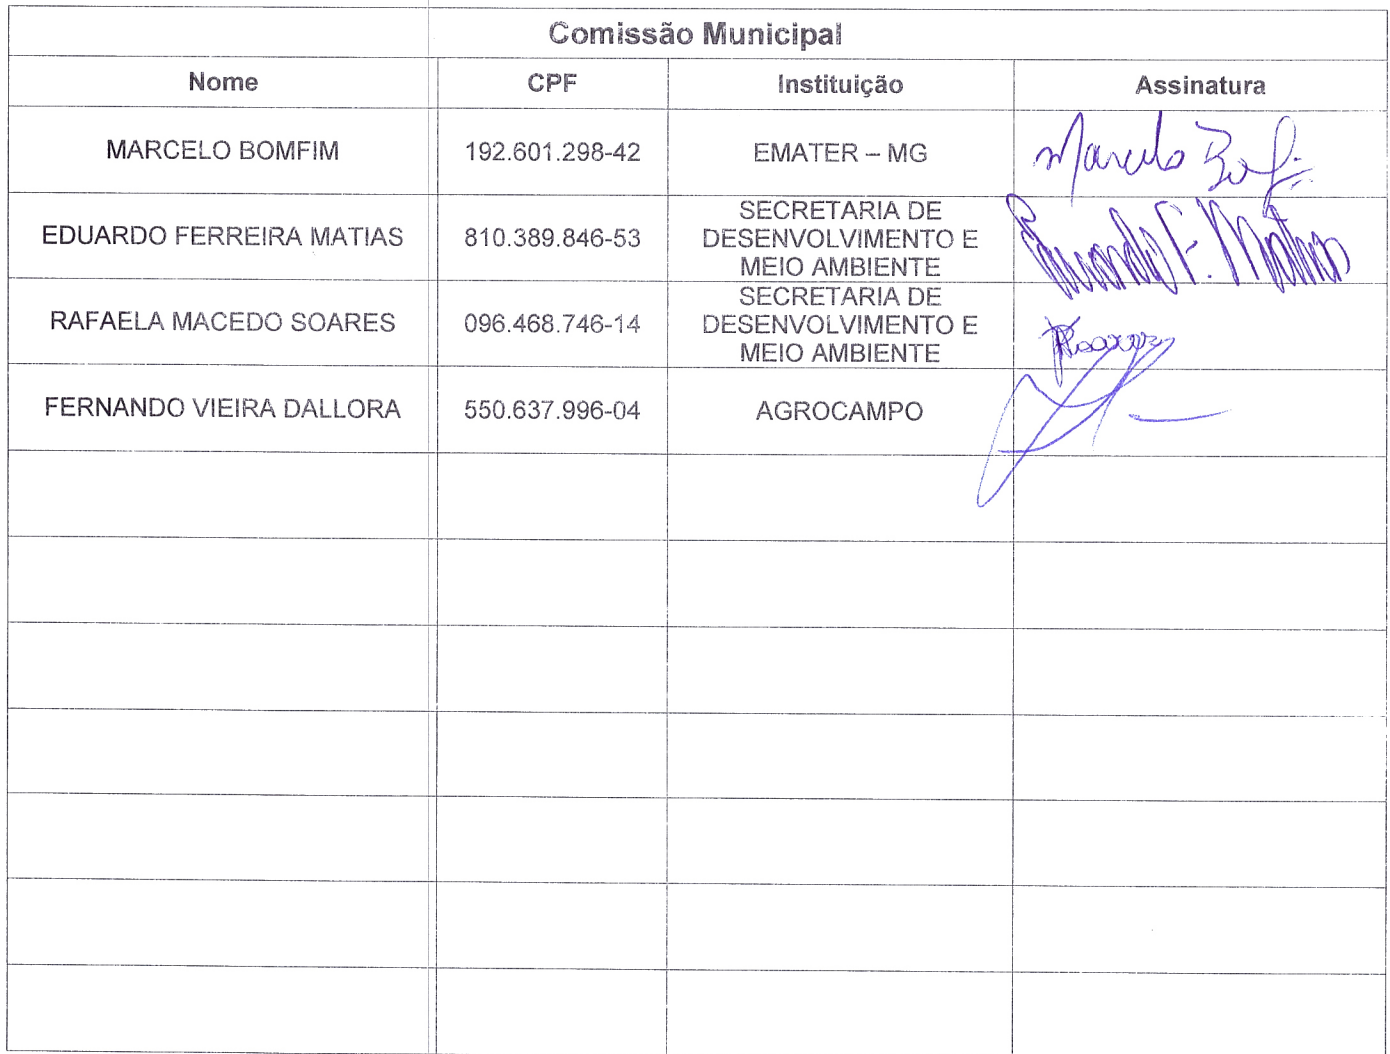 Comissão Municipal
Nome CPF Instituição Assinatura
MARCELO BOMFIM 192.601.298-42 EMATER – MG Marcelo Bomfim
EDUARDO FERREIRA MATIAS 810.389.846-53 SECRETARIA DE
DESENVOLVIMENTO E
MEIO AMBIENTE Eduardo F. Matias
RAFAELA MACEDO SOARES 096.468.746-14 SECRETARIA DE
DESENVOLVIMENTO E
MEIO AMBIENTE RSoares
FERNANDO VIEIRA DALLORA 550.637.996-04 AGROCAMPO